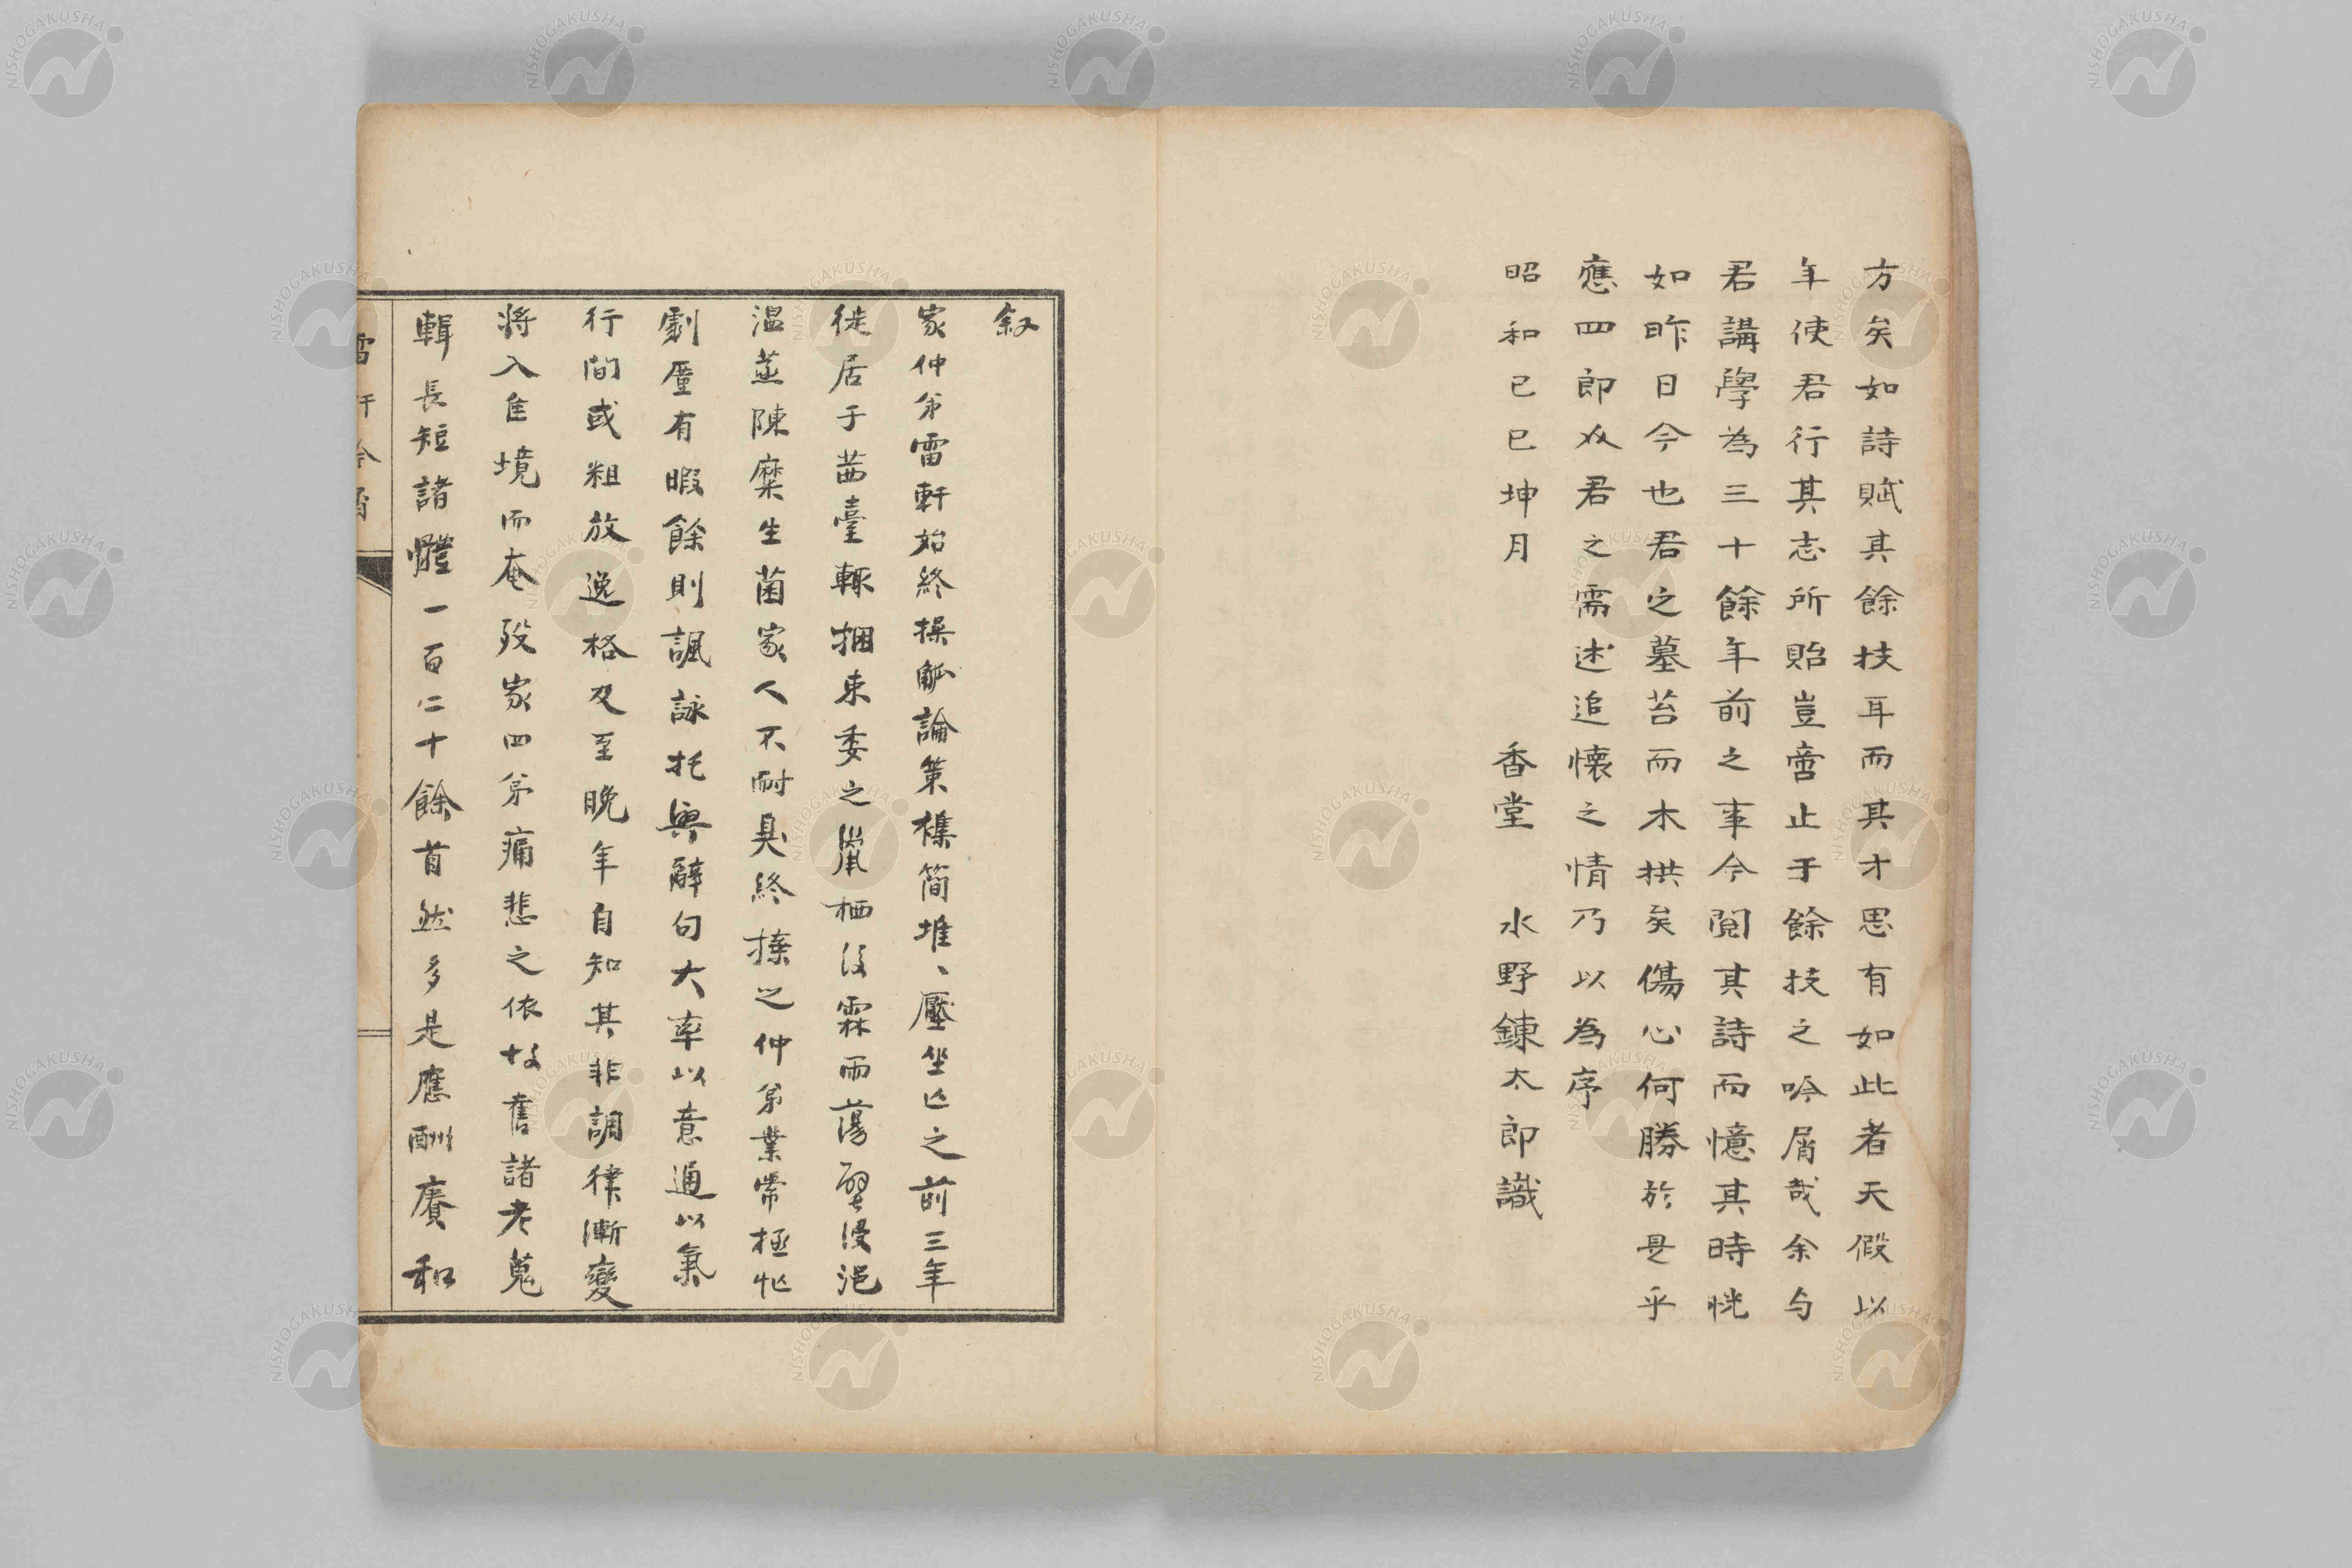 方矣如詩賦其餘技耳而其才思有如此者天假以
年使君行其志所貽豈啻止于餘技之吟屑哉余与
君講學為三十餘年前之事今閲其詩而憶其時恍
如昨日今也君之墓苔而木拱矣傷心何勝於是乎
應四郎及君之需述追懐之情乃以為序
昭和己巳坤月
香堂 水野錬太郎識
叙
家仲弟雷軒始終操觚論策稿簡堆、壓坐亡之前三年
徙居于茜臺輙捆束委之巣栖後霖雨蕩壁浸浥
温蒸陳糜生菌家人不耐臭終捨之仲弟業常極忙
劇厪有暇餘則諷詠托興辭句大率以意通以氣
行間或粗放逸格及至晩年自知其非調律漸變
将入佳境而奄歿家四弟痛悲之依故舊諸老蒐
輯長短諸體一百二十餘首然多是應酬賡和
NISHOGAKUSHA